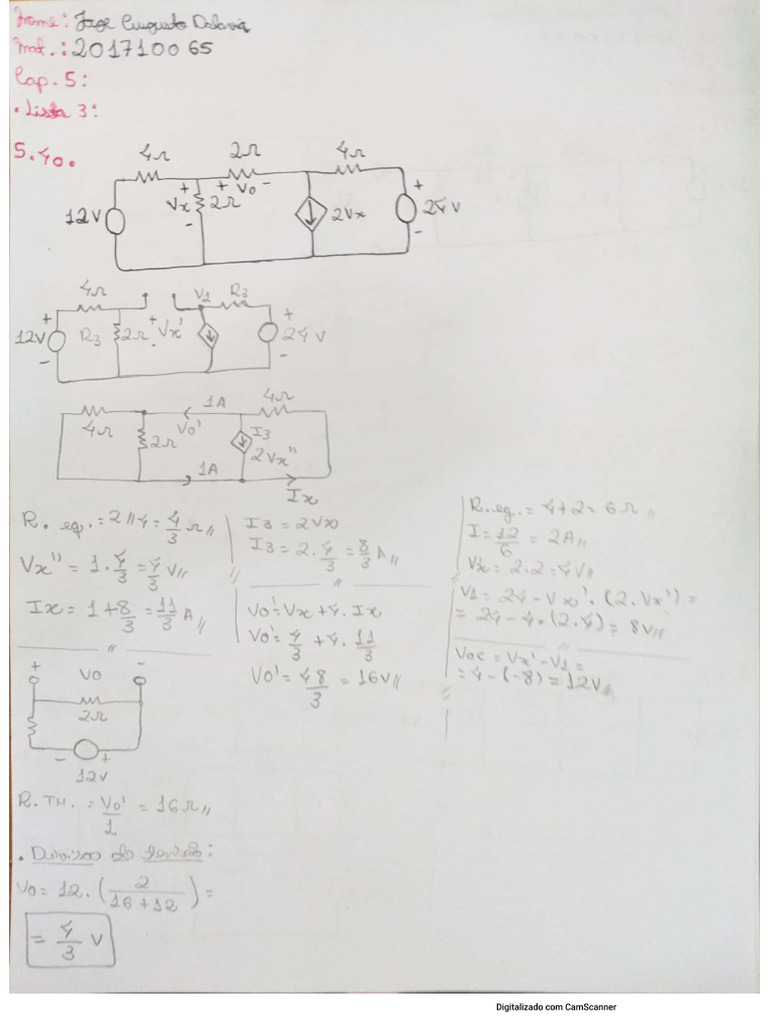 Nome: Jage Augusto Dalavia
Mat.: 201710065
Cap. 5:
• Lista 3:
5.40.
4Ω 2Ω 4Ω
12V + Vx - 2Ω + Vo - 2Vx + 24V -
4Ω V1 R3
+ 12V - R3 2Ω + Vx' - + 24V -
1A 4Ω
4Ω 2Ω Vo' I3 2Vx''
1A
Ix
R. eq. = 2//4 = 4/3 Ω//
Vx'' = 1 . 4/3 = 4/3 V//
Ix = 1 + 8/3 = 11/3 A//
I3 = 2Vx
I3 = 2 . 4/3 = 8/3 A//
Vo' = Vx + 4 . Ix
Vo' = 4/3 + 4 . 11/3
Vo' = 48/3 = 16V//
R.eq. = 4+2 = 6Ω//
I = 12/6 = 2A//
Vx' = 2.2 = 4V//
V1 = 24 - Vx' . (2.Vx') =
= 24 - 4.(2.4) = 8V//
Voc = Vx' - V1 =
= 4 - (-8) = 12V//
+ Vo -
2Ω
- +
12V
R.TH. = Vo'/1 = 16Ω//
• Divisor de tensão:
Vo = 12 . (2/16+12) =
= 4/3 V
Digitalizado com CamScanner